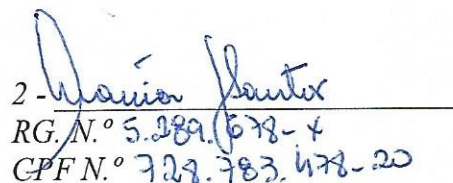 2 - Vania Santos
RG. N.º 5.289.678-x
CPF N.º 728.783.478-20